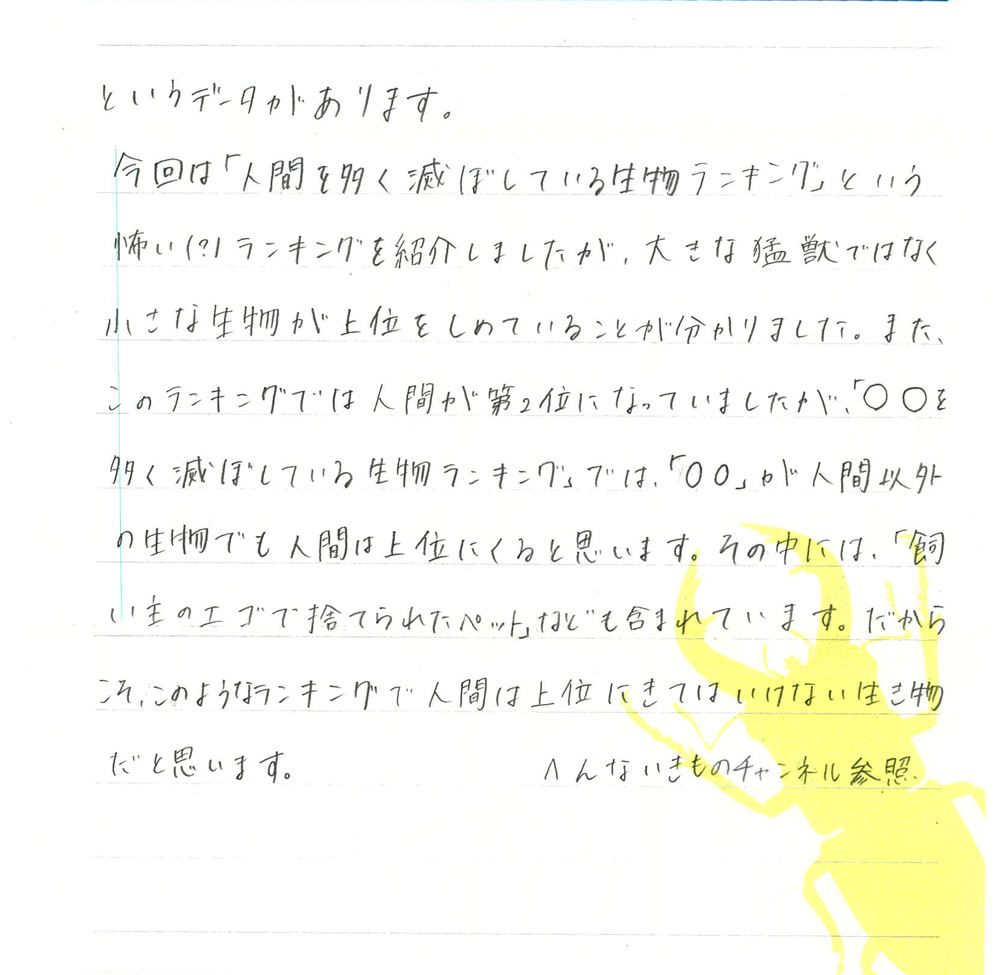 というデータがあります。
今回は「人間を多く滅ぼしている生物ランキング」という
怖い(?)ランキングを紹介しましたが、大きな猛獣ではなく
小さな生物が上位をしめていることが分かりました。また、
このランキングでは人間が第2位になっていましたが、「〇〇を
多く滅ぼしている生物ランキング」では、「〇〇」が人間以外
の生物でも人間は上位にくると思います。その中には、「飼
い主のエゴで捨てられたペット」なども含まれています。だから
こそ、このようなランキングで人間は上位にきてはいけない生き物
だと思います。
へんないきものチャンネル参照.